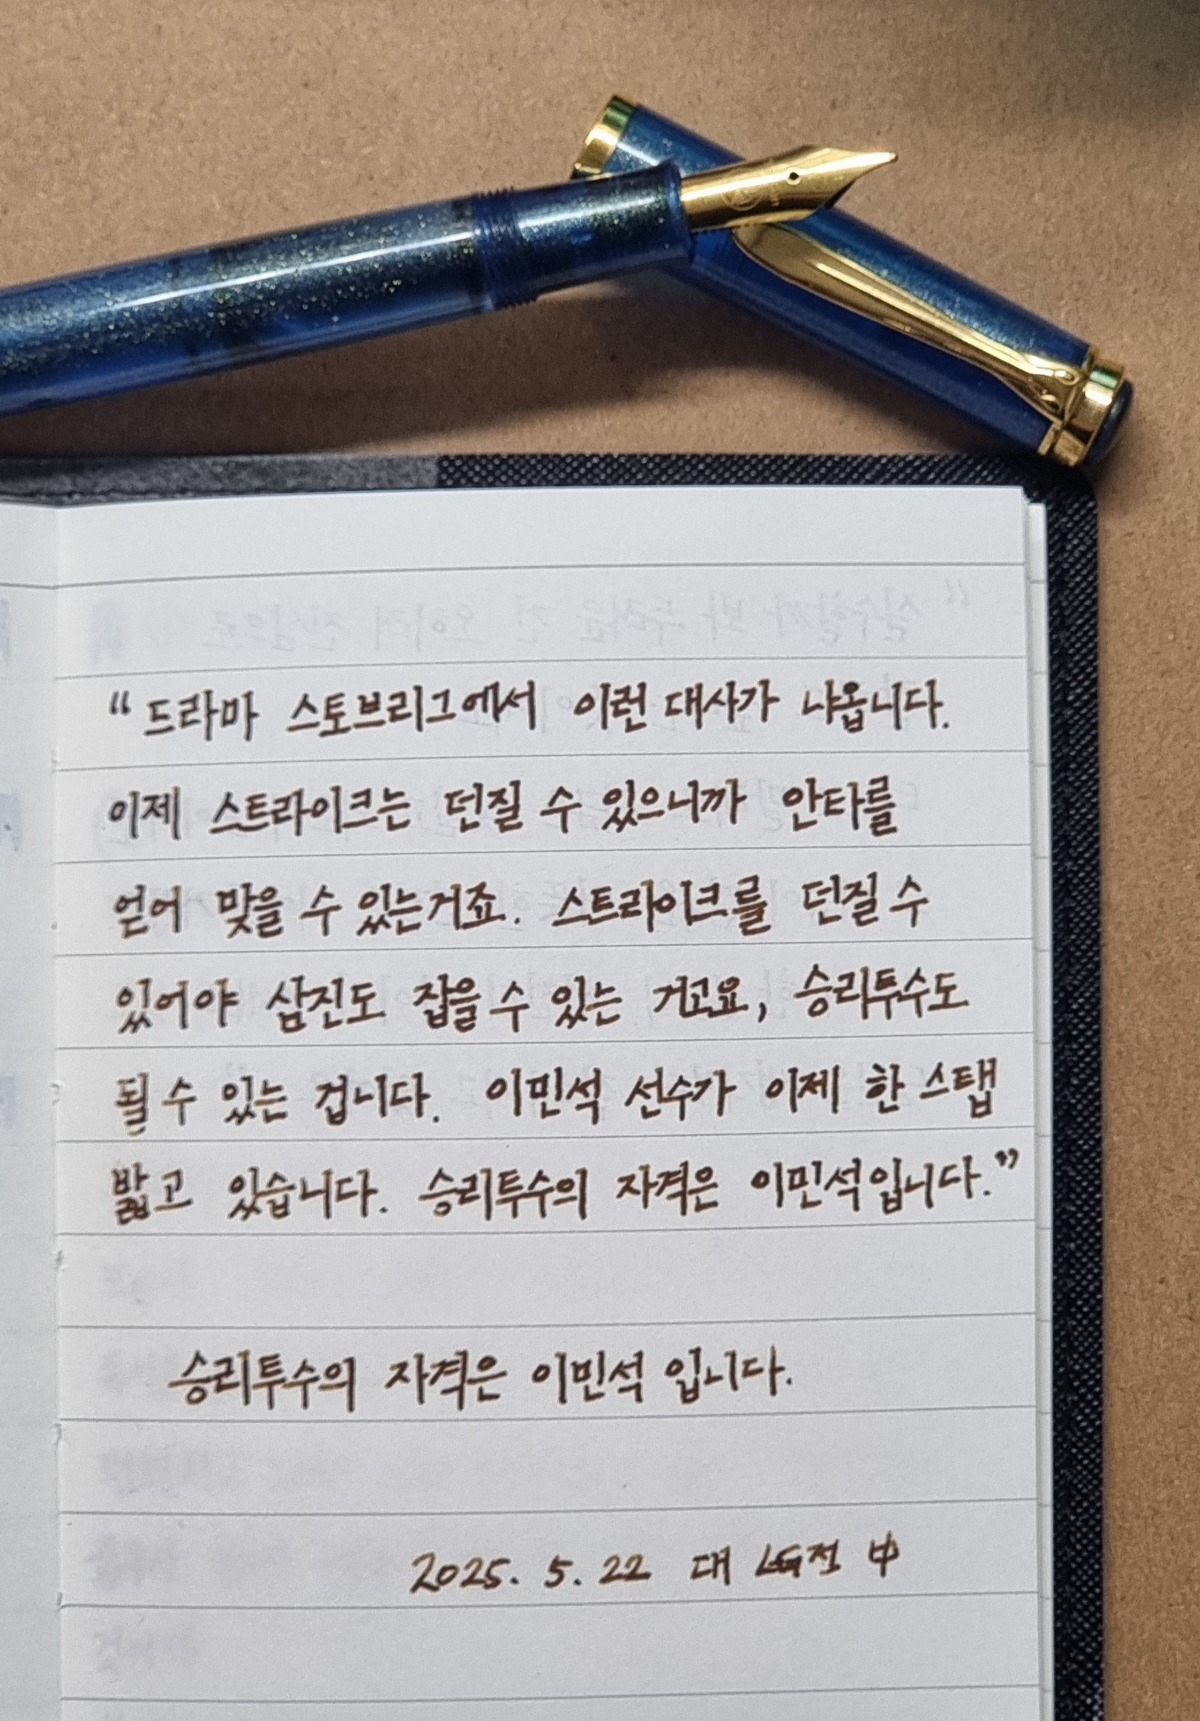 “드라마 스토브리그에서 이런 대사가 나옵니다.
이제 스트라이크는 던질 수 있으니까 안타를
얻어 맞을 수 있는거죠. 스트라이크를 던질 수
있어야 삼진도 잡을 수 있는 거고요, 승리투수도
될 수 있는 겁니다. 이민석 선수가 이제 한 스탭
밟고 있습니다. 승리투수의 자격은 이민석입니다.”
승리투수의 자격은 이민석 입니다.
2025. 5. 22 대 LG전 中